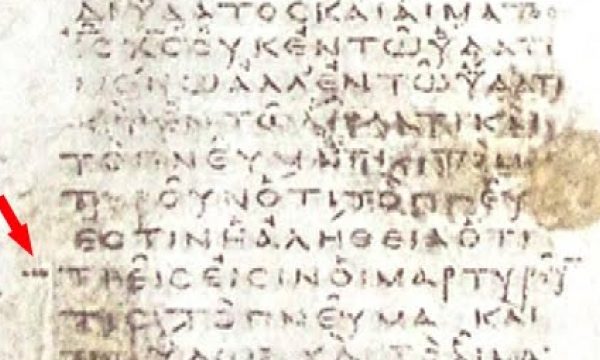 ΔΙΥΔΑΤΟϹΚΑΙΑΙΜΑΤΟ
ΙϹΧϹΟΥΚΕΝΤΩΥΔΑΤΙ
ΜΟΝΩΑΛΛΕΝΤΩΥΔΑΤΙ
ΚΑΙΕΝΤΩΑΙΜΑΤΙΚΑΙ
ΤΟΠΝΕΥΜΑ
ΤΥΡΟΥΝΟΤΙΤΟΠΝΕΥ
ΕϹΤΙΝΗΑΛΗΘΕΙΑΟΤΙ
ΤΡΕΙϹΕΙϹΙΝΟΙΜΑΡΤΥΡΟΥ
ΤΕϹΤΟΠΝΕΥΜΑΚΑΙ